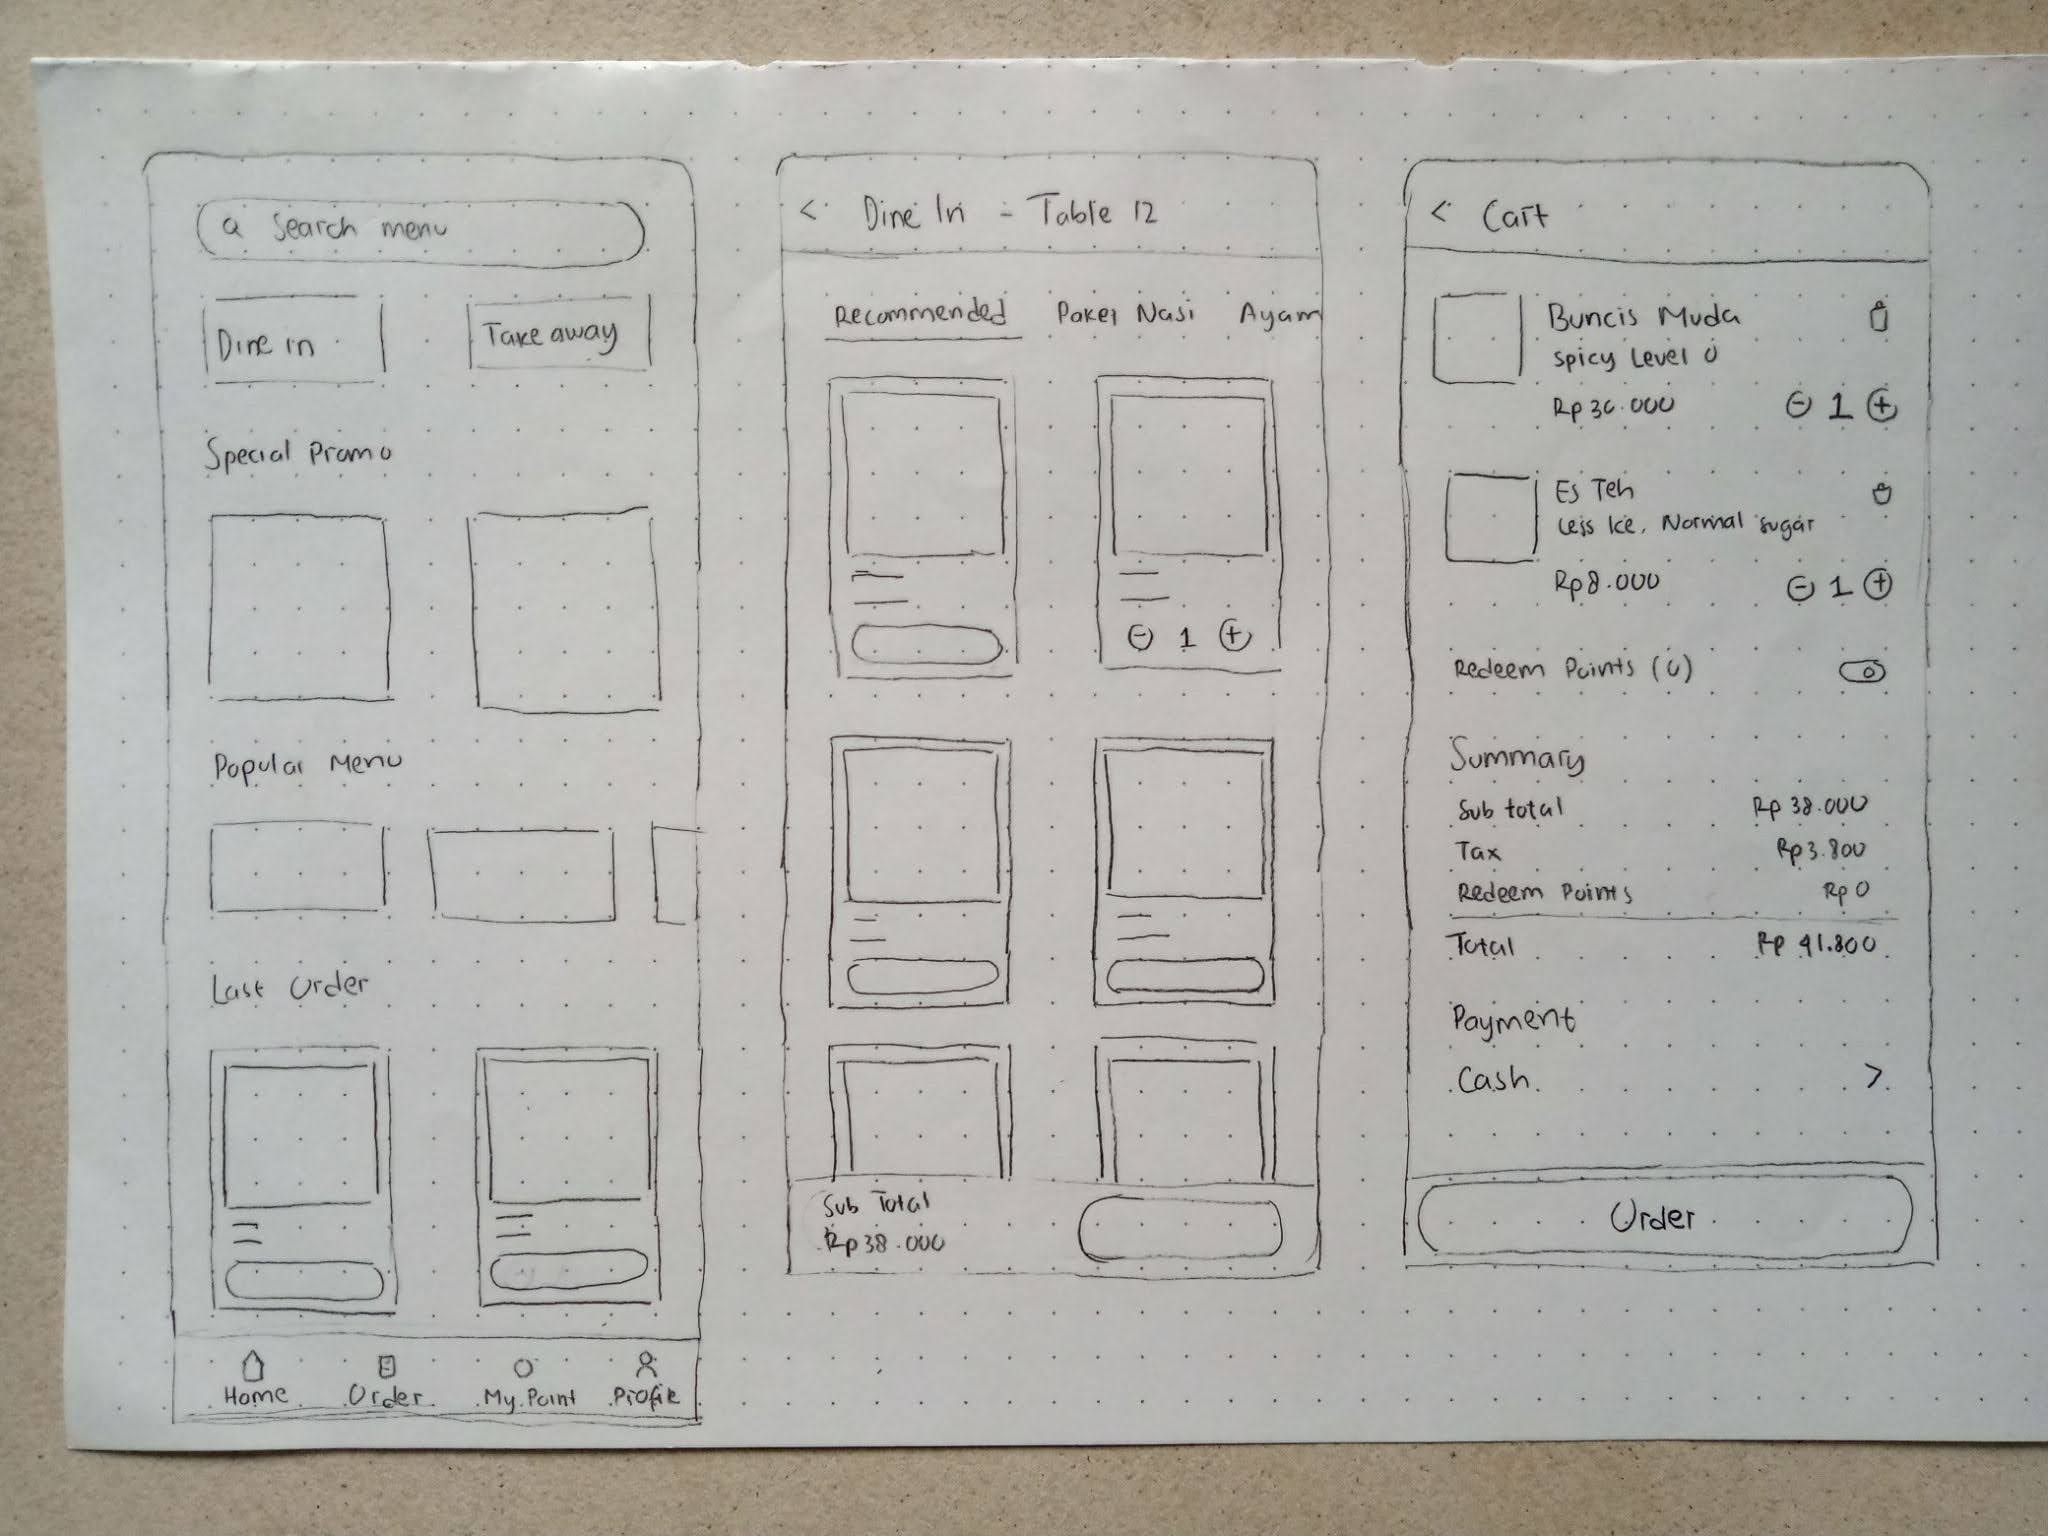 Search menu
Dine in
Take away
Special Promo
Popular Menu
Last Order
Home
Order
My Point
Profile
< Dine In - Table 12
Recommended
Paket Nasi
Ayam
- 1 +
Sub Total
Rp 38.000
< Cart
Buncis Muda
Spicy Level 0
Rp 30.000
- 1 +
Es Teh
Less Ice, Normal sugar
Rp 8.000
- 1 +
Redeem Points (0)
Summary
Sub total Rp 38.000
Tax Rp 3.800
Redeem Points Rp 0
Total Rp 41.800
Payment
Cash >
Order